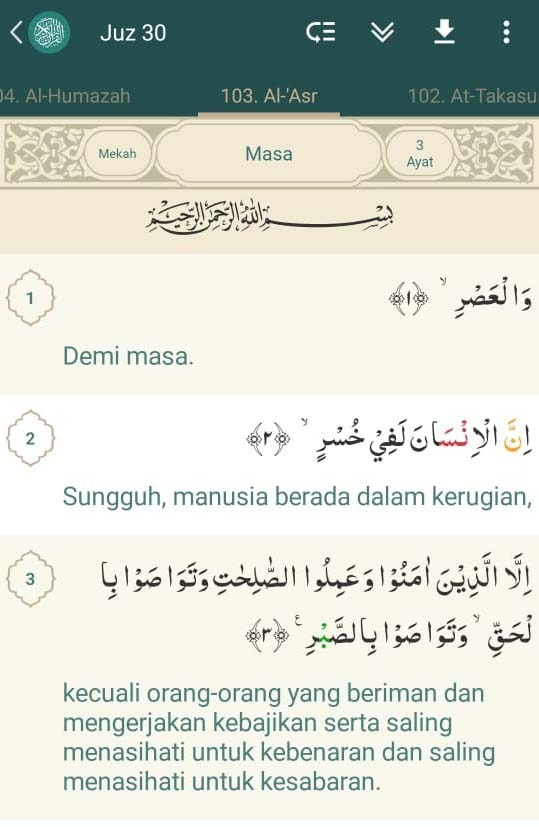 Juz 30
04. Al-Humazah 103. Al-'Asr 102. At-Takasu
Mekah Masa 3 Ayat
بِسْــــــــمِ اللّٰهِ الرَّحْمٰنِ الرَّحِيْمِ
1 وَالْعَصْرِ ۙ ﴿١﴾
Demi masa.
2 اِنَّ الْاِنْسَانَ لَفِيْ خُسْرٍ ۙ ﴿٢﴾
Sungguh, manusia berada dalam kerugian,
3 اِلَّا الَّذِيْنَ اٰمَنُوْا وَعَمِلُوا الصّٰلِحٰتِ وَتَوَاصَوْا بِا
لْحَقِّ ۙ وَتَوَاصَوْا بِالصَّبْرِ ۚ ﴿٣﴾
kecuali orang-orang yang beriman dan
mengerjakan kebajikan serta saling
menasihati untuk kebenaran dan saling
menasihati untuk kesabaran.